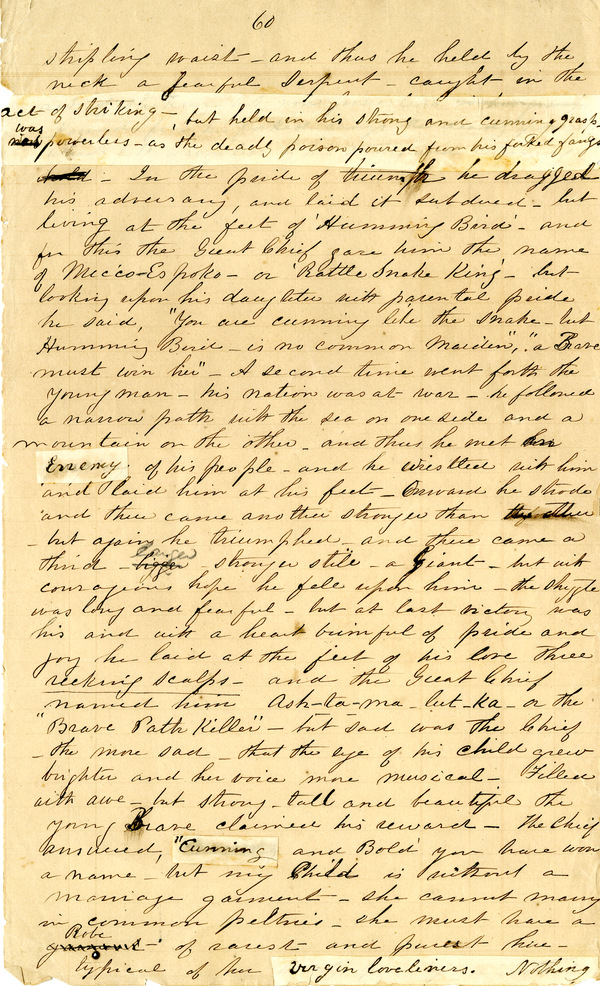 60
stripling waist - and thus he held by the
neck a fearful Serpent - caught in the
act of striking - but held in his strong and cunning grasp
was powerless - as the deadly poison poured from his forked fangs
- In the pride of triumph he dragged
his adversary, and laid it subdued - but
living at the feet of 'Humming Bird' - and
for this the Great Chief gave him the name
of Micco-Espoko - or 'Rattle Snake King - but
looking upon his daughter with parental pride
he said, "You are cunning like the Snake - but
Humming Bird - is no common Maiden", "a Brave
must win her" - A second time went forth the
young man - his nation was at war - he followed
a narrow path with the sea on one side and a
mountain on the other - and thus he met
Enemy of his people - and he wrestled with him
and laid him at his feet - Onward he strode
and there came another stronger than the other
- but again he triumphed - and there came a
third - larger stronger still - a Giant - but with
courageous hope he fell upon him - the struggle
was long and fearful - but at last victory was
his and with a heart brimful of pride and
joy he laid at the feet of his love three
reeking scalps - and the Great Chief
named him Ash-ta-ma-lut-ka - or the
"Brave Path Killer" - but sad was the Chief
- the more sad - that the eye of his child grew
brighter and her voice more musical - Filled
with awe - but strong - tall and beautiful the
young Brave claimed his reward - The Chief
answered, "Cunning and Bold' you have won
a name - but my Child is without a
marriage garment - she cannot marry
in common peltries - she must have a
Robe of rarest and purest hue -
typical of her virgin loveliness. Nothing